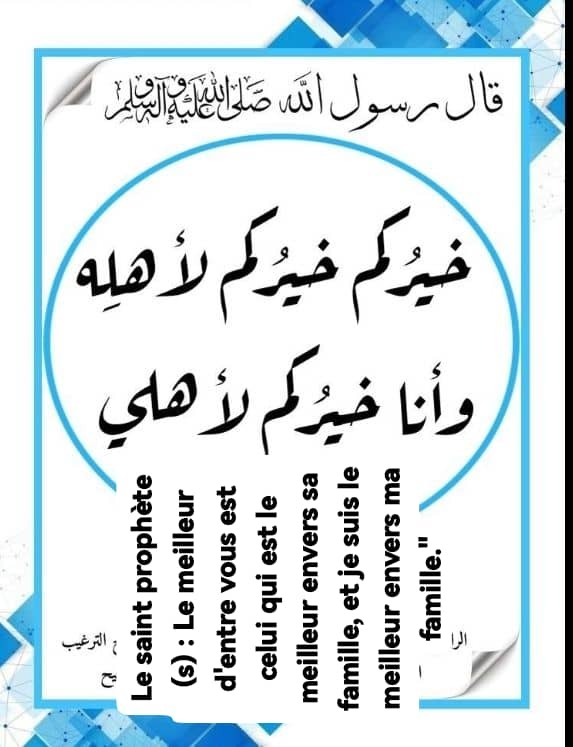 قال رسول الله صلى الله عليه وآله وسلم
خيرُكم خيرُكم لأهلِه
وأنا خيرُكم لأهلي
Le saint prophète
(s) : Le meilleur
d'entre vous est
celui qui est le
meilleur envers sa
famille, et je suis le
meilleur envers ma
famille."
الترغيب